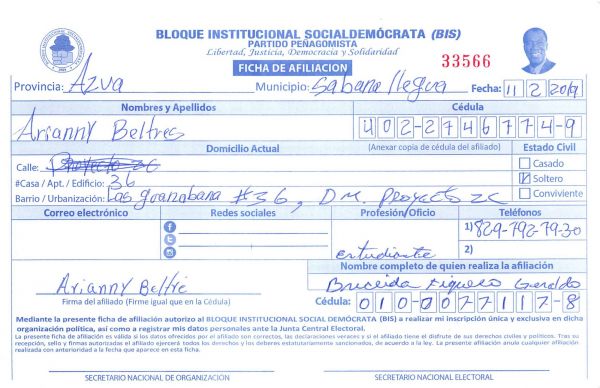 BLOQUE INSTITUCIONAL SOCIALDEMÓCRATA (BIS)
PARTIDO PEÑAGOMISTA
Libertad, Justicia, Democracia y Solidaridad
FICHA DE AFILIACION
33566
Provincia: Azua Municipio: Sabana Yegua Fecha: 11 2 2019
Nombres y Apellidos Cédula
Arianny Beltres 402-2746774-9
Domicilio Actual (Anexar copia de cédula del afiliado) Estado Civil
Calle: Proyecto 2C Casado
#Casa / Apt. / Edificio: 36 Soltero
Barrio / Urbanización: Las guanabana #36, D.M. Proyecto 2C Conviviente
Correo electrónico Redes sociales Profesión/Oficio Teléfonos
1) 829-792-7930
estudiante 2)
Nombre completo de quien realiza la afiliación
Arianny Beltre Figuereo Geraldo
Firma del afiliado (Firme igual que en la Cédula) Cédula: 010-0077117-8
Mediante la presente ficha de afiliación autorizo al BLOQUE INSTITUCIONAL SOCIAL DEMÓCRATA (BIS) a realizar mi inscripción única y exclusiva en dicha
organización política, así como a registrar mis datos personales ante la Junta Central Electoral.
La presente ficha de afiliación es válida si los datos ofrecidos por el afiliado son correctos, las declaraciones veraces y si el afiliado tiene el disfrute de sus derechos civiles y políticos. Tras su
recepción, sello y firmas autorizadas el afiliado ejercerá todos los derechos y los deberes estatutariamente sancionados, de acuerdo a la ley. La presente afiliación anula cualquier afiliación
realizada con anterioridad a la fecha que aparece en esta ficha.
SECRETARIO NACIONAL DE ORGANIZACIÓN SECRETARIO NACIONAL ELECTORAL